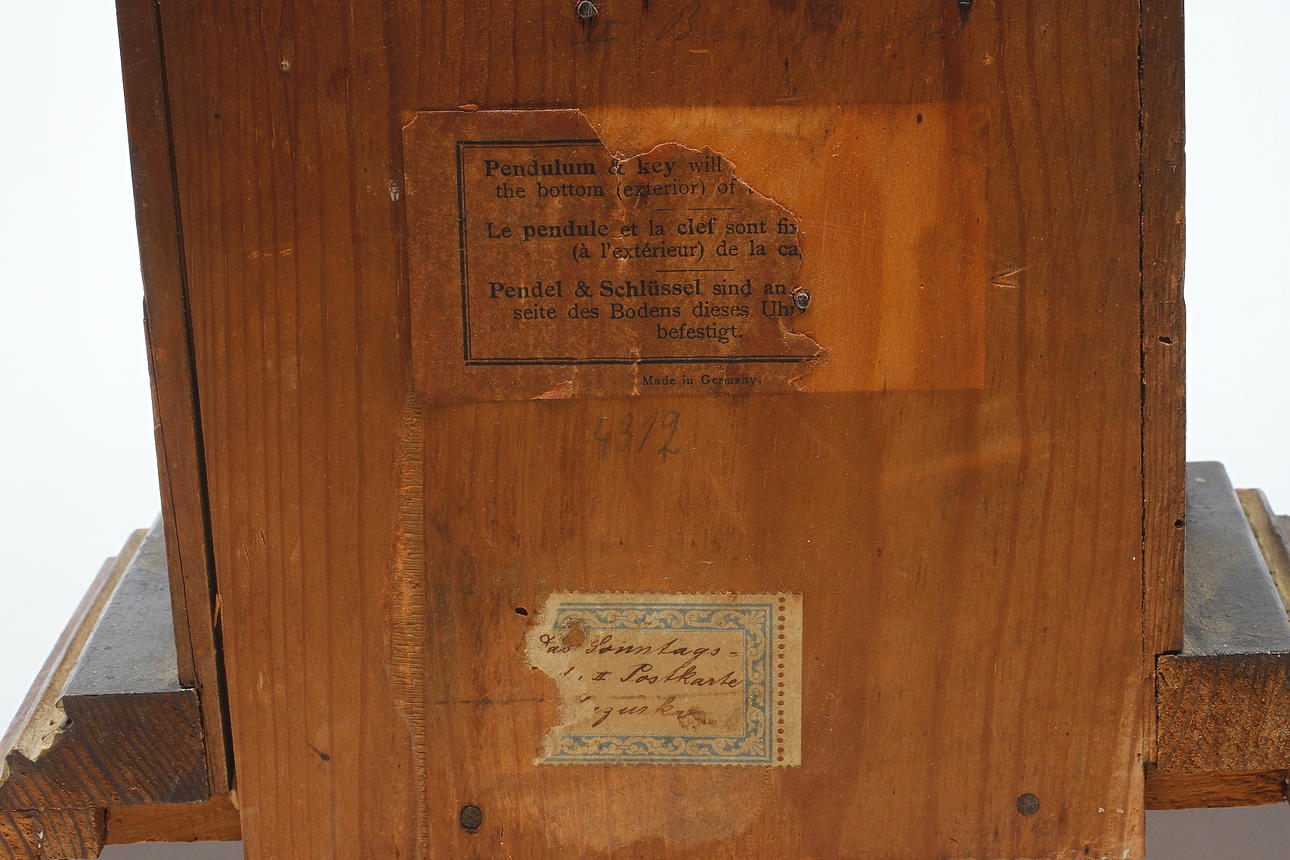 Pendulum & key will
the bottom (exterior) of
Le pendule et la clef sont fix
(à l'extérieur) de la ca
Pendel & Schlüssel sind an
seite des Bodens dieses Uhr
befestigt.
Made in Germany.
4312
das Sonntags=
Postkarte